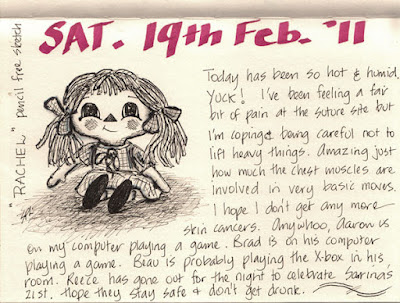 SAT. 19th FEB. '11
"RACHEL" pencil free sketch
Today has been so hot & humid.
YUCK! I've been feeling a fair
bit of pain at the suture site but
I'm coping & being careful not to
lift heavy things. Amazing just
how much the chest muscles are
involved in very basic moves.
I hope I don't get any more
skin cancers. Anywhoo, Aaron is
on my computer playing a game. Brad is on his computer
playing a game. Beau is probably playing the X-box in his
room. Reece has gone out for the night to celebrate Sarrinas
21st. Hope they stay safe & don't get drunk.